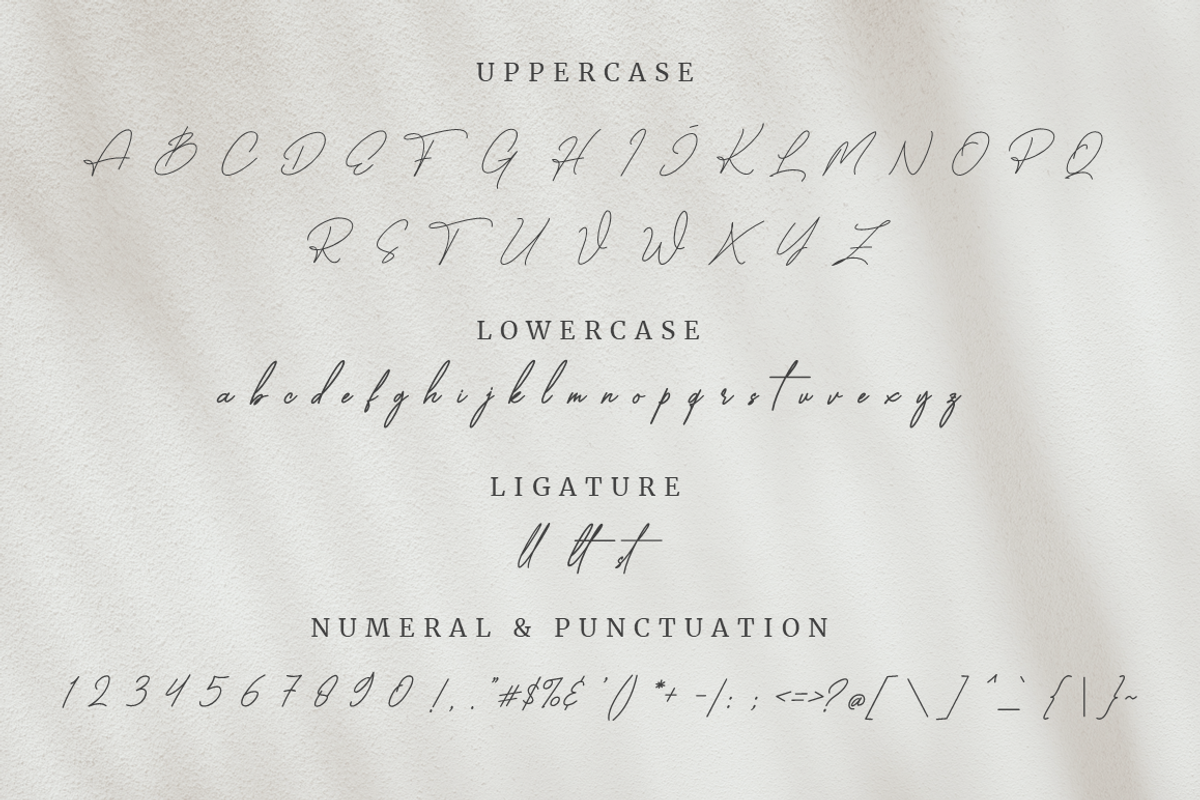 UPPERCASE
A B C D E F G H I J K L M N O P Q
R S T U V W X Y Z
LOWERCASE
a b c d e f g h i j k l m n o p q r s t u v e x y z
LIGATURE
ll tt st
NUMERAL & PUNCTUATION
1 2 3 4 5 6 7 8 9 0 ! , . " # $ % & ' ( ) * + - / : ; < = > ? @ [ \ ] ^ _ ` { | } ~